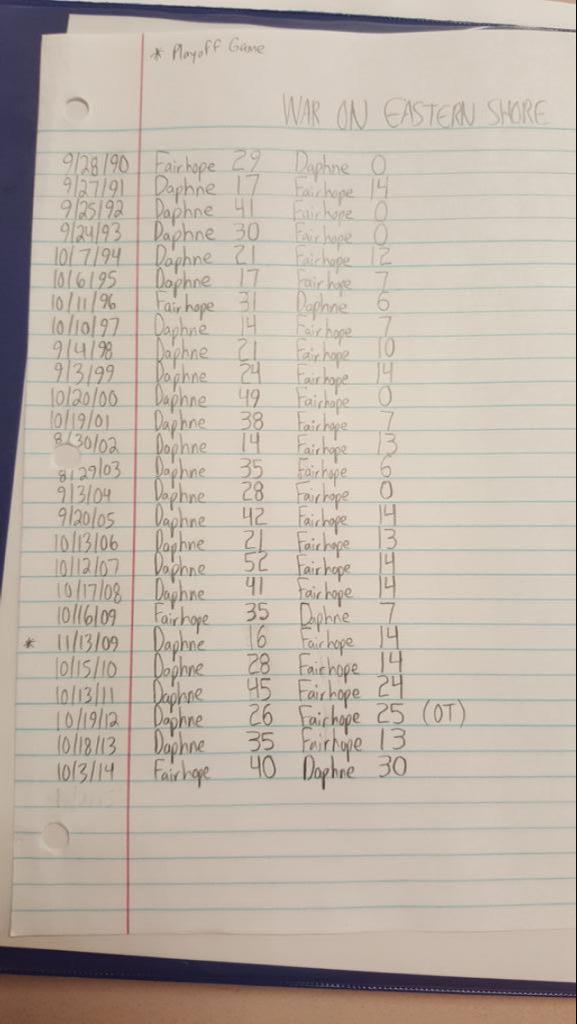 * Playoff Game
WAR ON EASTERN SHORE
9/28/90 Fairhope 29 Daphne 0
9/27/91 Daphne 17 Fairhope 14
9/25/92 Daphne 41 Fairhope 0
9/24/93 Daphne 30 Fairhope 0
10/7/94 Daphne 21 Fairhope 12
10/6/95 Daphne 17 Fairhope 7
10/11/96 Fairhope 31 Daphne 6
10/10/97 Daphne 14 Fairhope 7
9/4/98 Daphne 21 Fairhope 10
9/3/99 Daphne 24 Fairhope 14
10/20/00 Daphne 49 Fairhope 0
10/19/01 Daphne 38 Fairhope 7
8/30/02 Daphne 14 Fairhope 13
8/29/03 Daphne 35 Fairhope 6
9/3/04 Daphne 28 Fairhope 0
9/20/05 Daphne 42 Fairhope 14
10/13/06 Daphne 21 Fairhope 13
10/12/07 Daphne 52 Fairhope 14
10/17/08 Daphne 41 Fairhope 14
10/16/09 Fairhope 35 Daphne 7
* 11/13/09 Daphne 16 Fairhope 14
10/15/10 Daphne 28 Fairhope 14
10/13/11 Daphne 45 Fairhope 24
10/19/12 Daphne 26 Fairhope 25 (OT)
10/18/13 Daphne 35 Fairhope 13
10/3/14 Fairhope 40 Daphne 30